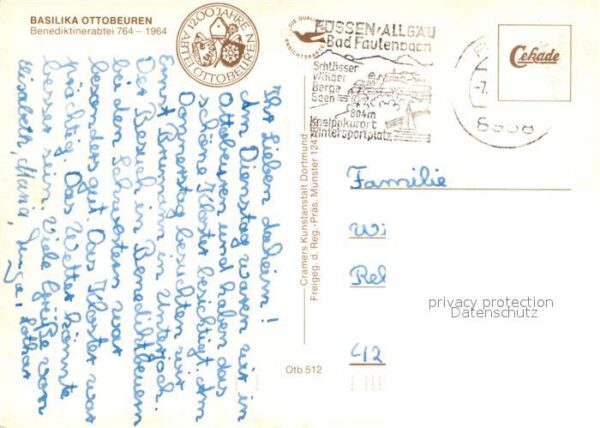 BASILIKA OTTOBEUREN
Benediktinerabtei 764 – 1964
1200 JAHRE ABTEI OTTOBEUREN
Ihr Lieben daheim!
Am Dienstag waren wir in
Ottobeuren und haben das
schöne Kloster besichtigt. Am
Donnerstag besuchten wir
Ernst Brumann in Unterjoch.
Der Besuch in Benediktbeuern
bei den Schwestern war
besonders gut. Das Kloster war
prächtig. Das Wetter könnte
besser sein. Viele Grüße von
Elisabeth, Maria, Inge, Lothar
Cramers Kunstanstalt Dortmund
Freigeg. d. Reg.-Präs. Münster 124
Otb 512
FÜSSEN/ALLGÄU
Bad Faulenbach
Schlösser
Wälder
Berge
Seen
804m
Kneippkurort
Wintersportplatz
-7.
Cekade
Familie
Wi
Rel
42
privacy protection
Datenschutz